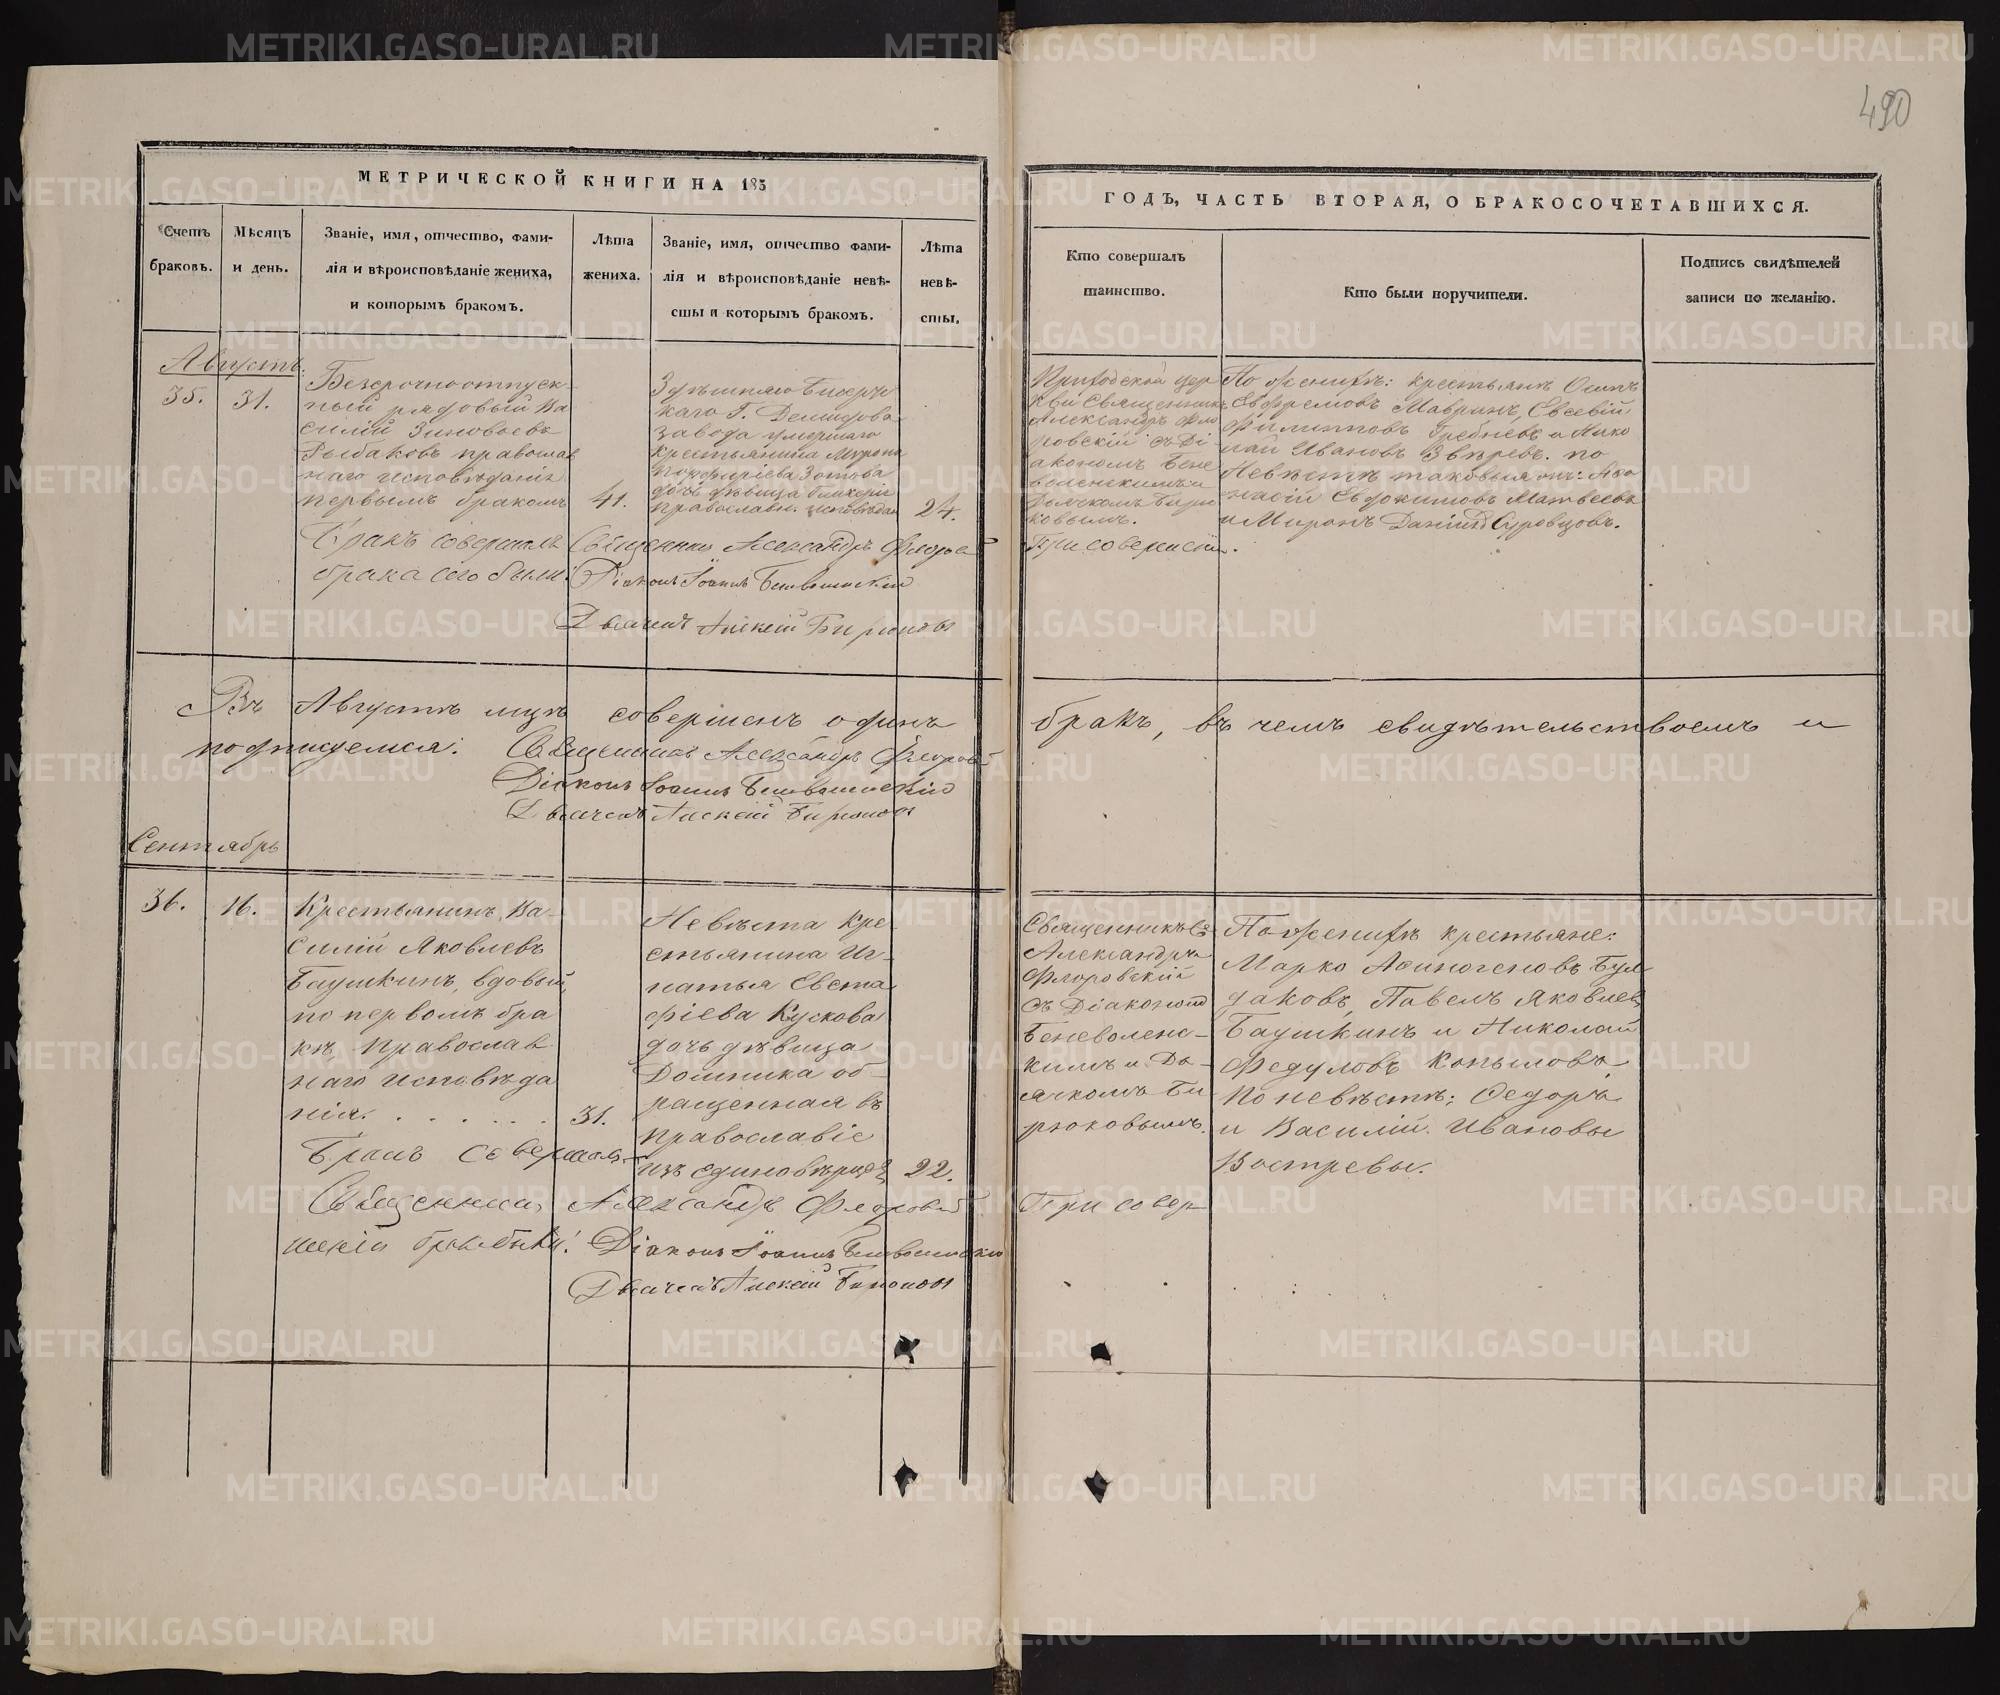 490
МЕТРИЧЕСКОЙ КНИГИ НА 185
ГОДЪ, ЧАСТЬ ВТОРАЯ, О БРАКОСОЧЕТАВШИХСЯ.
Счетъ
браковъ.
Мѣсяцъ
и день.
Званіе, имя, отчество, фами-
лія и вѣроисповѣданіе жениха,
и которымъ бракомъ.
Лѣта
жениха.
Званіе, имя, отчество фами-
лія и вѣроисповѣданіе невѣ-
сты и которымъ бракомъ.
Лѣта
невѣ-
сты.
Кто совершалъ
таинство.
Кто были поручители.
Подпись свидѣтелей
записи по желанію.
Августъ.
35.
31.
Безсрочноотпуск-
ный рядовый Ва
силій Зиновьевъ
Рыбаковъ православ
наго исповѣданія
первымъ бракомъ
41.
Здѣшняго Бисерс
каго Г. Демидова
завода умершаго
крестьянина Мирона
Порфиріева Зотова
дочь дѣвица
православн. исповѣдан
24.
Приходской цер
кви Священникъ
Александръ Фло
ровскій съ Ді
акономъ Бене
воленскимъ и
Дьячкомъ Бирю
ковымъ.
По женихѣ: крестьянъ Осипъ
Ефремовъ Мавринъ, Евсевій
Филипповъ Гребневъ и Нико
лай Ивановъ Звѣревъ. по
Невѣстѣ таковыя жъ: Афо
насій Евдокимовъ Матвѣевъ
и Миронъ Даніилъ Суровцовъ.
Бракъ совершалъ Священникъ Александръ Флоровск
При совершеніи
брака сего были: Діаконъ Іоаннъ Беневоленскій
Дьячекъ Алексій Бирюковъ
Въ Августѣ мцѣ совершенъ одинъ
бракъ, въ чемъ свидѣтельствуемъ и
подписуемся: Священникъ Александръ Флоровск
Діаконъ Іоаннъ Беневоленскій
Дьячекъ Алексій Бирюковъ
Сентябрь
36.
16.
Крестьянинъ Ва-
силій Яковлевъ
Баушкинъ, вдовый,
по первомъ бра
кѣ, Православ
наго исповѣда
нія. . . . . . .
31.
Невѣста кре
стьянина Иг-
натья Евста
фіева Кускова
дочь дѣвица
Домника об-
ращенная въ
православіе
изъ единовѣрцевъ
22.
Священникъ
Александръ
Флоровскій
съ Діакономъ
Беневоленс-
кимъ и Дь-
ячкомъ Би
рюковымъ.
По женихѣ крестьяне:
Марко Афиногеновъ Бул
даковъ, Павелъ Яковлевъ
Баушкинъ и Николай
Федуловъ Копыловъ
По невѣстѣ: Ѳедоръ
и Василій Ивановы
Востревы.
Бракъ совершалъ
Священникъ Александръ Флоровск
При совер
шеніи брака были: Діаконъ Іоаннъ Беневоленскій
Дьячекъ Алексій Бирюковъ
METRIKI.GASO-URAL.RU